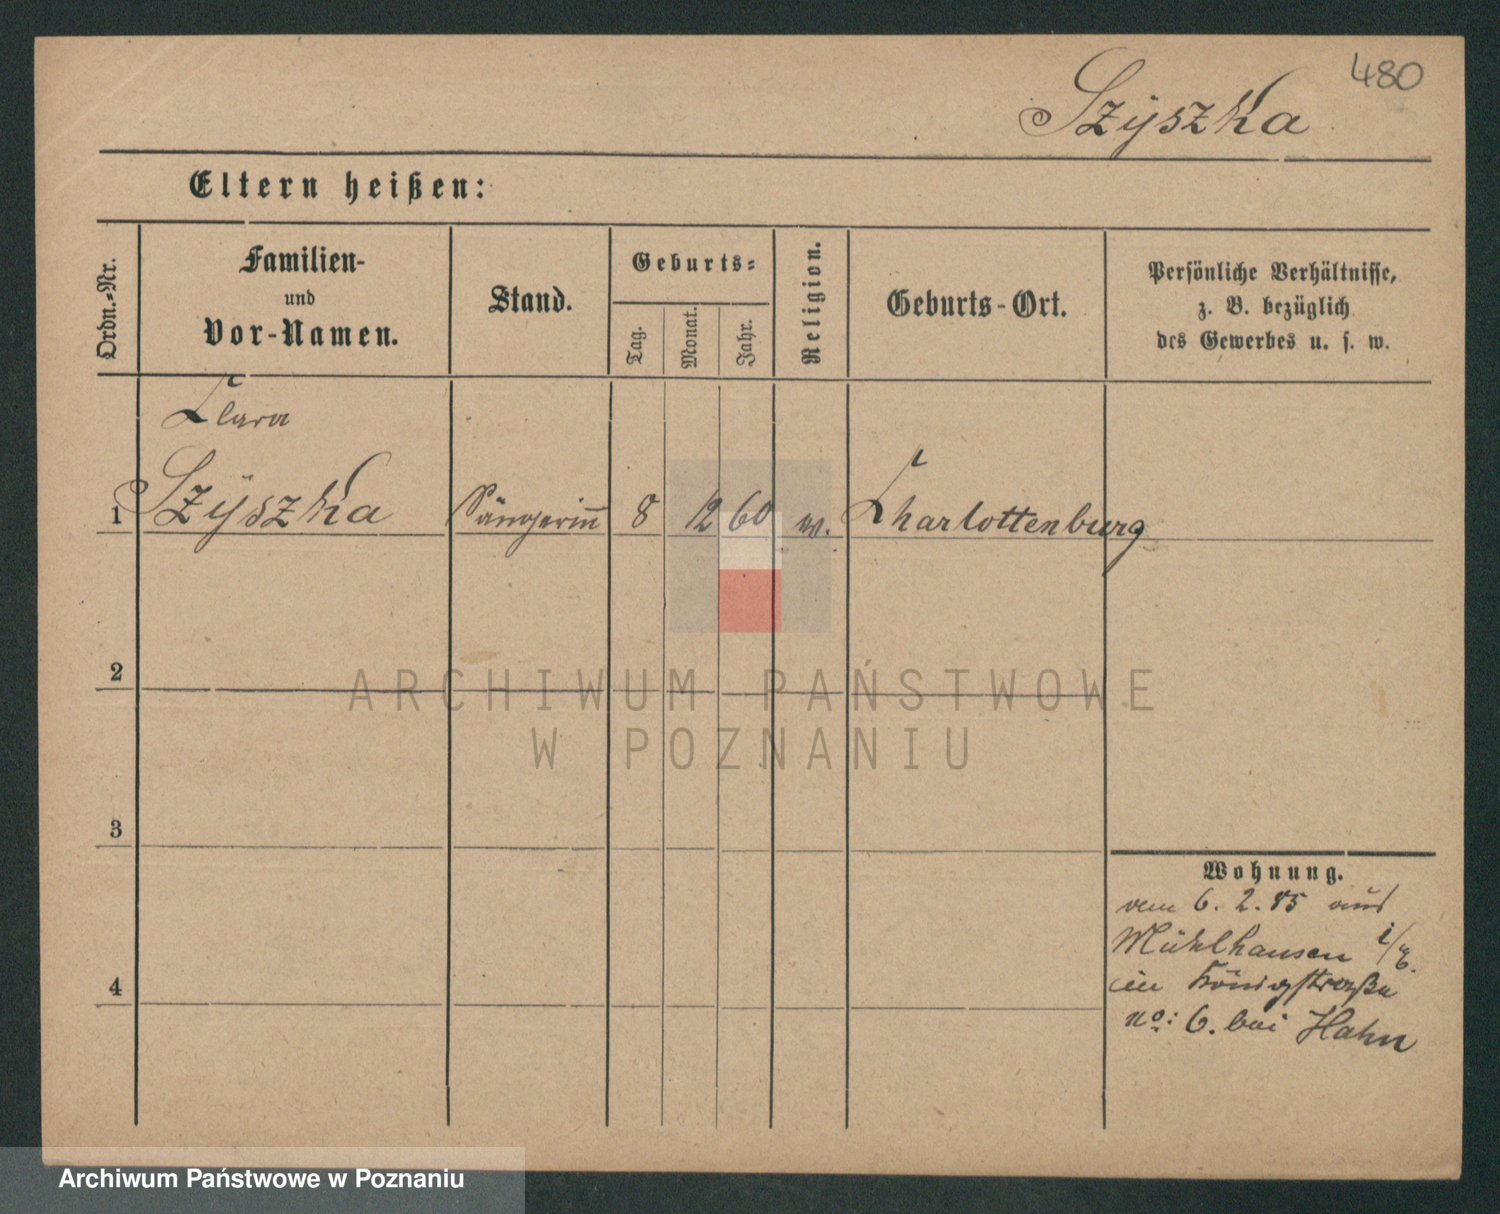 480
Szÿszka
Eltern heißen:
Ordn.-Nr.
Familien-
und
Vor-Namen.
Stand.
Geburts-
Tag.
Monat.
Jahr.
Religion.
Geburts-Ort.
Persönliche Verhältnisse,
z. B. bezüglich
des Gewerbes u. s. w.
Clara
1 Szÿszka Sängerin 8 12 60 w. Charlottenburg
2
ARCHIWUM PAŃSTWOWE
W POZNANIU
3
Wohnung.
vom 6. 2. 85 aus
Mühlhausen i/E.
in Königstraße
no: 6. bei Hahn
4
Archiwum Państwowe w Poznaniu